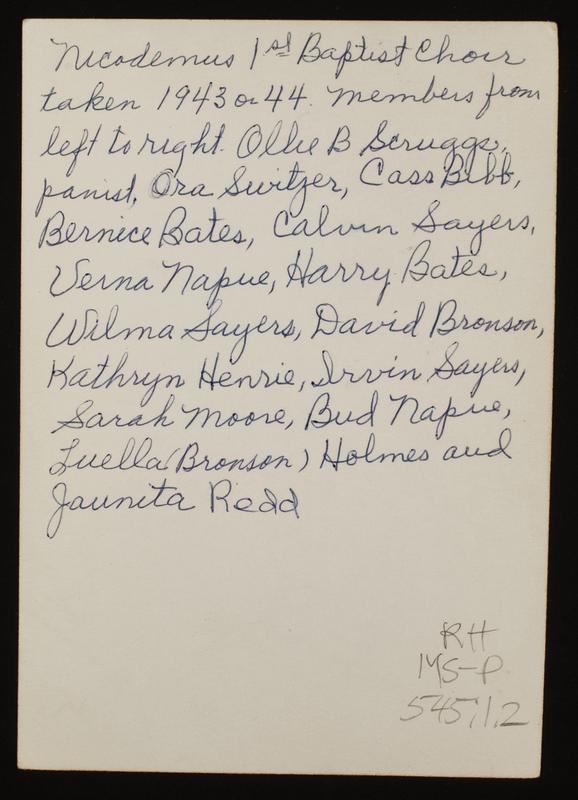 Nicodemus 1st Baptist Choir
taken 1943 or 44. Members from
left to right. Ollie B Scruggs,
panist, Ora Switzer, Cass Bibb,
Bernice Bates, Calvin Sayers,
Verna Napue, Harry Bates,
Wilma Sayers, David Bronson,
Kathryn Henrie, Irvin Sayers,
Sarah Moore, Bud Napue,
Luella (Bronson) Holmes and
Jaunita Redd
RH
MS-P
545:1.2